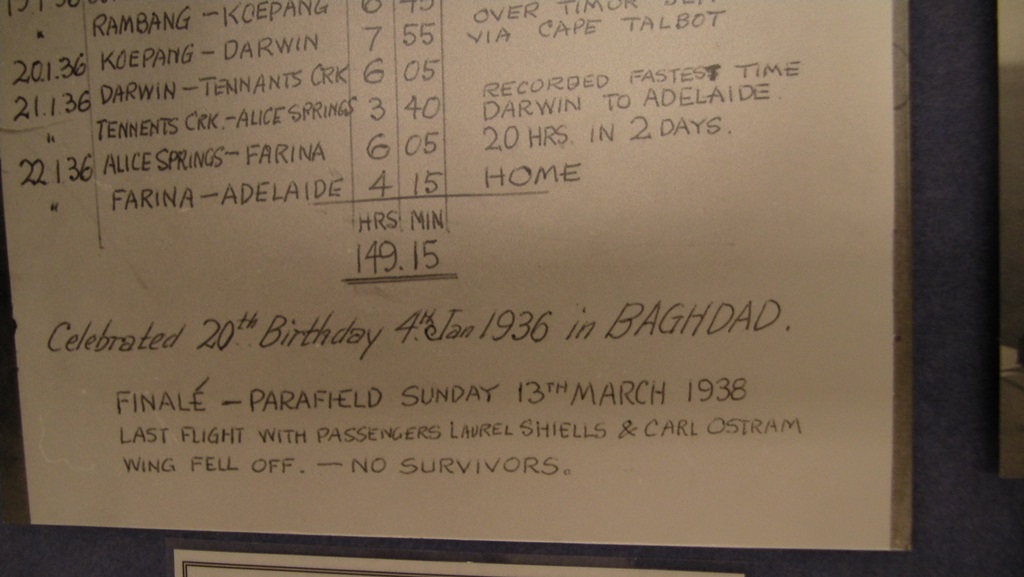 RAMBANG - KOEPANG
" KOEPANG - DARWIN 7 55 VIA CAPE TALBOT
20.1.36 DARWIN - TENNANTS CRK 6 05 RECORDED FASTEST TIME
21.1.36 TENNENTS CRK. - ALICE SPRINGS 3 40 DARWIN TO ADELAIDE
" ALICE SPRINGS - FARINA 6 05 20 HRS. IN 2 DAYS.
22.1.36 FARINA - ADELAIDE 4 15 HOME
"
HRS MIN
149.15
Celebrated 20th Birthday 4th Jan 1936 in BAGHDAD.
FINALÉ - PARAFIELD SUNDAY 13TH MARCH 1938
LAST FLIGHT WITH PASSENGERS LAUREL SHIELLS & CARL OSTRAM
WING FELL OFF. - NO SURVIVORS.